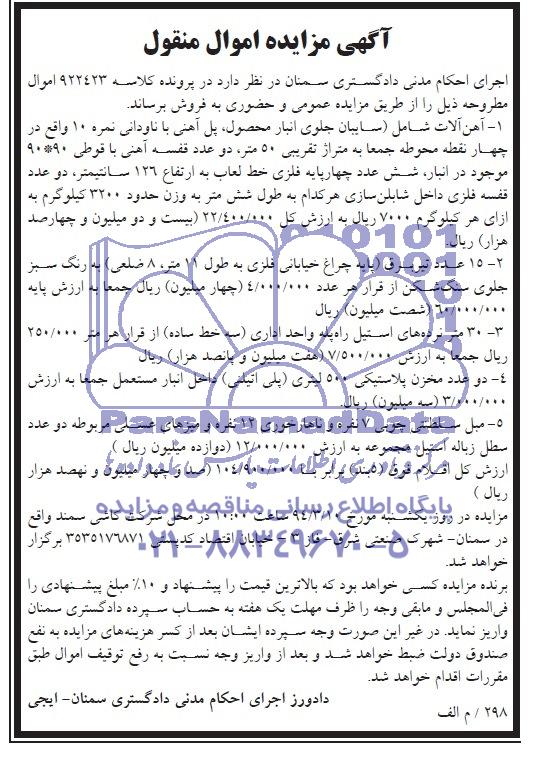 آگهی مزایده اموال منقول
اجرای احکام مدنی دادگستری سمنان در نظر دارد در پرونده کلاسه ۹۲۲۴۲۳ اموال
مطروحه ذیل را از طریق مزایده عمومی و حضوری به فروش برساند.
۱- آهن‌آلات شامل (سایبان جلوی انبار محصول، پل آهنی با ناودانی نمره ۱۰ واقع در
چهار نقطه محوطه جمعا به متراژ تقریبی ۵۰ متر، دو عدد قفسه آهنی با قوطی ۹۰*۹۰
موجود در انبار، شش عدد چهارپایه فلزی خط لعاب به ارتفاع ۱۲۶ سانتیمتر، دو عدد
قفسه فلزی داخل شابلن‌سازی هرکدام به طول شش متر به وزن حدود ۳۲۰۰ کیلوگرم به
ازای هر کیلوگرم ۷۰۰۰ ریال به ارزش کل ۲۲/۴۰۰/۰۰۰ (بیست و دو میلیون و چهارصد
هزار) ریال.
۲- ۱۵ عدد تیر برق (پایه چراغ خیابانی فلزی به طول ۱۱ متر، ۸ ضلعی) به رنگ سبز
جلوی سنگ‌شکن از قرار هر عدد ۴/۰۰۰/۰۰۰ (چهار میلیون) ریال جمعا به ارزش پایه
۶۰/۰۰۰/۰۰۰ (شصت میلیون) ریال
۳- ۳۰ متر نرده‌های استیل راه‌پله واحد اداری (سه خط ساده) از قرار هر متر ۲۵۰/۰۰۰
ریال جمعا به ارزش ۷/۵۰۰/۰۰۰ (هفت میلیون و پانصد هزار) ریال
۴- دو عدد مخزن پلاستیکی ۵۰۰ لیتری (پلی اتیلنی) داخل انبار مستعمل جمعا به ارزش
۳/۰۰۰/۰۰۰ (سه میلیون) ریال.
۵- مبل سلطنتی چوبی ۷ نفره و ناهارخوری ۱۲ نفره و میزهای عسلی مربوطه دو عدد
سطل زباله استیل مجموعه به ارزش ۱۲/۰۰۰/۰۰۰ (دوازده میلیون ریال )
ارزش کل اقلام فوق (۵بند) برابر با ۱۰۴/۹۰۰/۰۰۰ (صد و چهار میلیون و نهصد هزار
ریال )
مزایده در روز یکشنبه مورخ ۹۴/۳/۱۰ ساعت ۱۰:۰۰ در محل شرکت کاشی سمند واقع
در سمنان- شهرک صنعتی شرق- فاز ۳ - خیابان اقتصاد کدپستی ۳۵۳۵۱۷۶۸۷۱ برگزار
خواهد شد.
برنده مزایده کسی خواهد بود که بالاترین قیمت را پیشنهاد و ۱۰٪ مبلغ پیشنهادی را
فی‌المجلس و مابقی وجه را ظرف مهلت یک هفته به حساب سپرده دادگستری سمنان
واریز نماید. در غیر این صورت وجه سپرده ایشان بعد از کسر هزینه‌های مزایده به نفع
صندوق دولت ضبط خواهد شد و بعد از واریز وجه نسبت به رفع توقیف اموال طبق
مقررات اقدام خواهد شد.
دادورز اجرای احکام مدنی دادگستری سمنان- ایجی
۲۹۸ / م الف
ParsNamadData
پایگاه اطلاع رسانی مناقصه و مزایده
۰۲۱-۸۸۳۴۹۶۷۰-۵